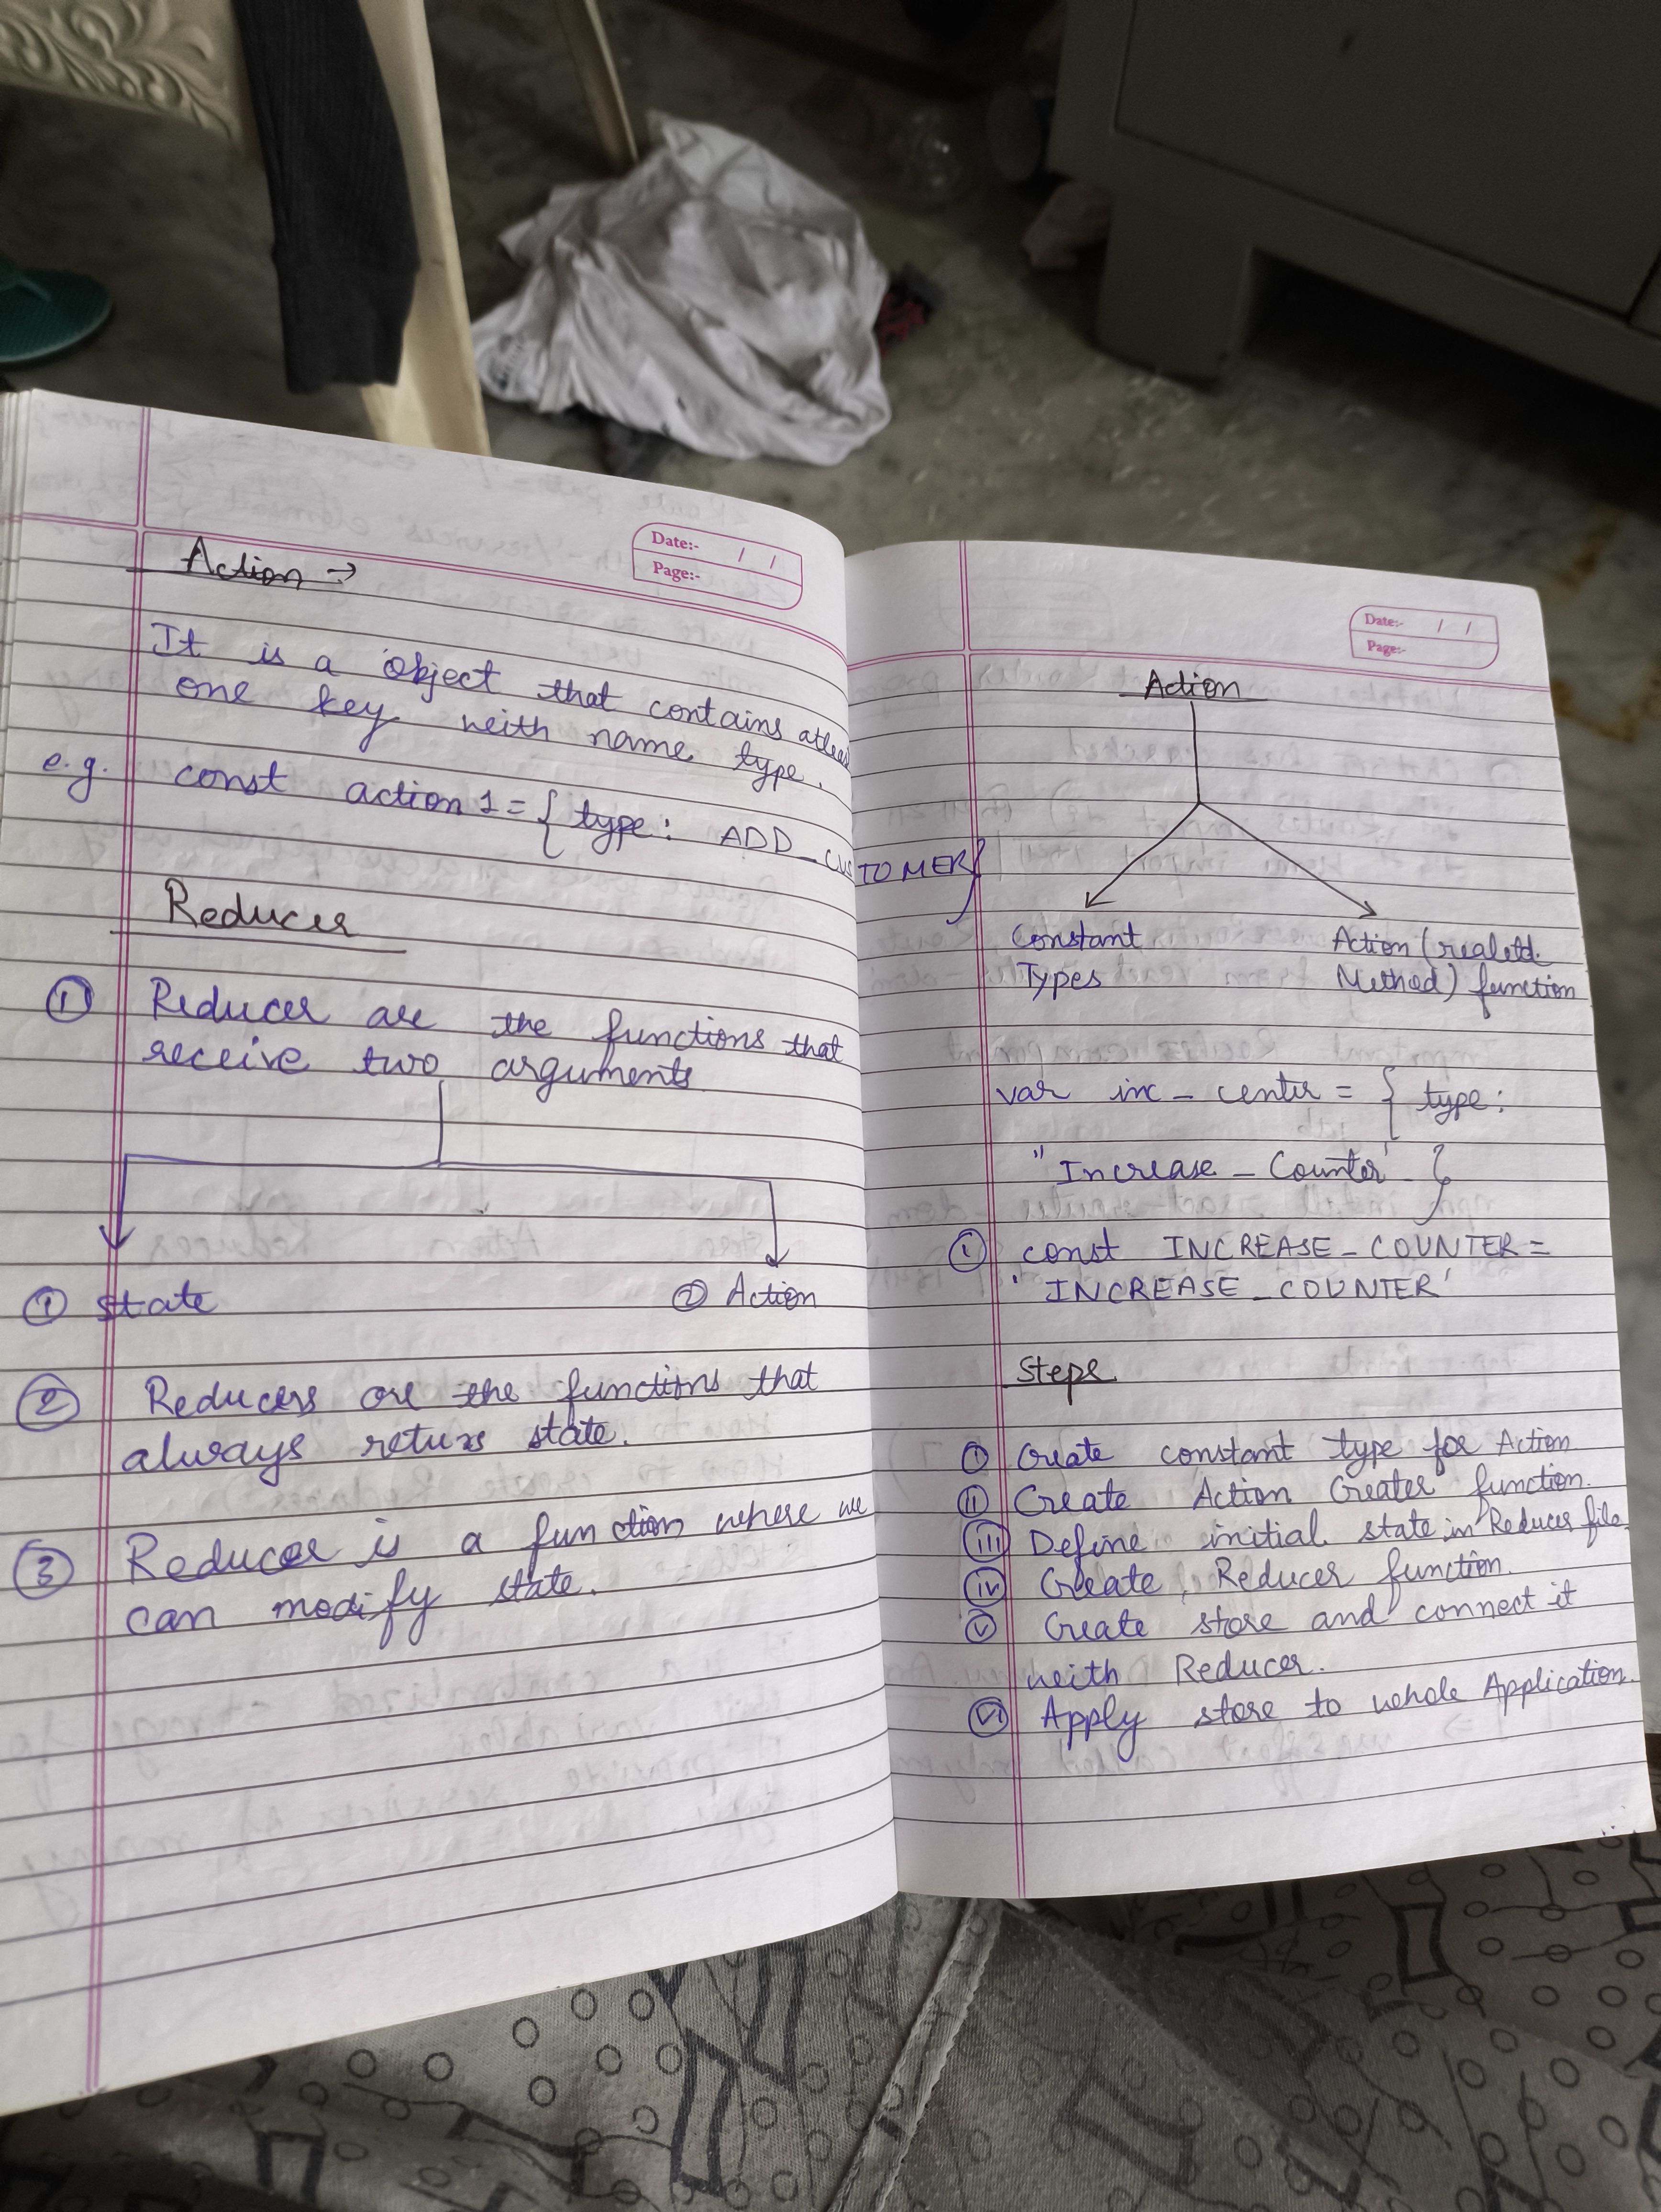 Date:- / /
Page:-
Action →
It is a object that contains atleas
one key with name type.
e.g. const action 1 = { type: ADD_CUSTOMER}
Reducer
① Reducer are the functions that
receive two arguments
① State ② Action
② Reducers are the functions that
always returns state.
③ Reducer is a function where we
can modify state.
Date:- / /
Page:-
Action
Constant Action (realetd.
Types Method) function
var inc_center = { type:
"Increase_Counter' }
① const INCREASE_COUNTER =
'INCREASE_COUNTER'
Steps
① Create constant type for Action
⑪ Create Action Creater function.
(iii) Define initial state in Reducer file.
(iv) Create Reducer function.
(v) Create store and connect it
with Reducer.
(vi) Apply store to whole Application.